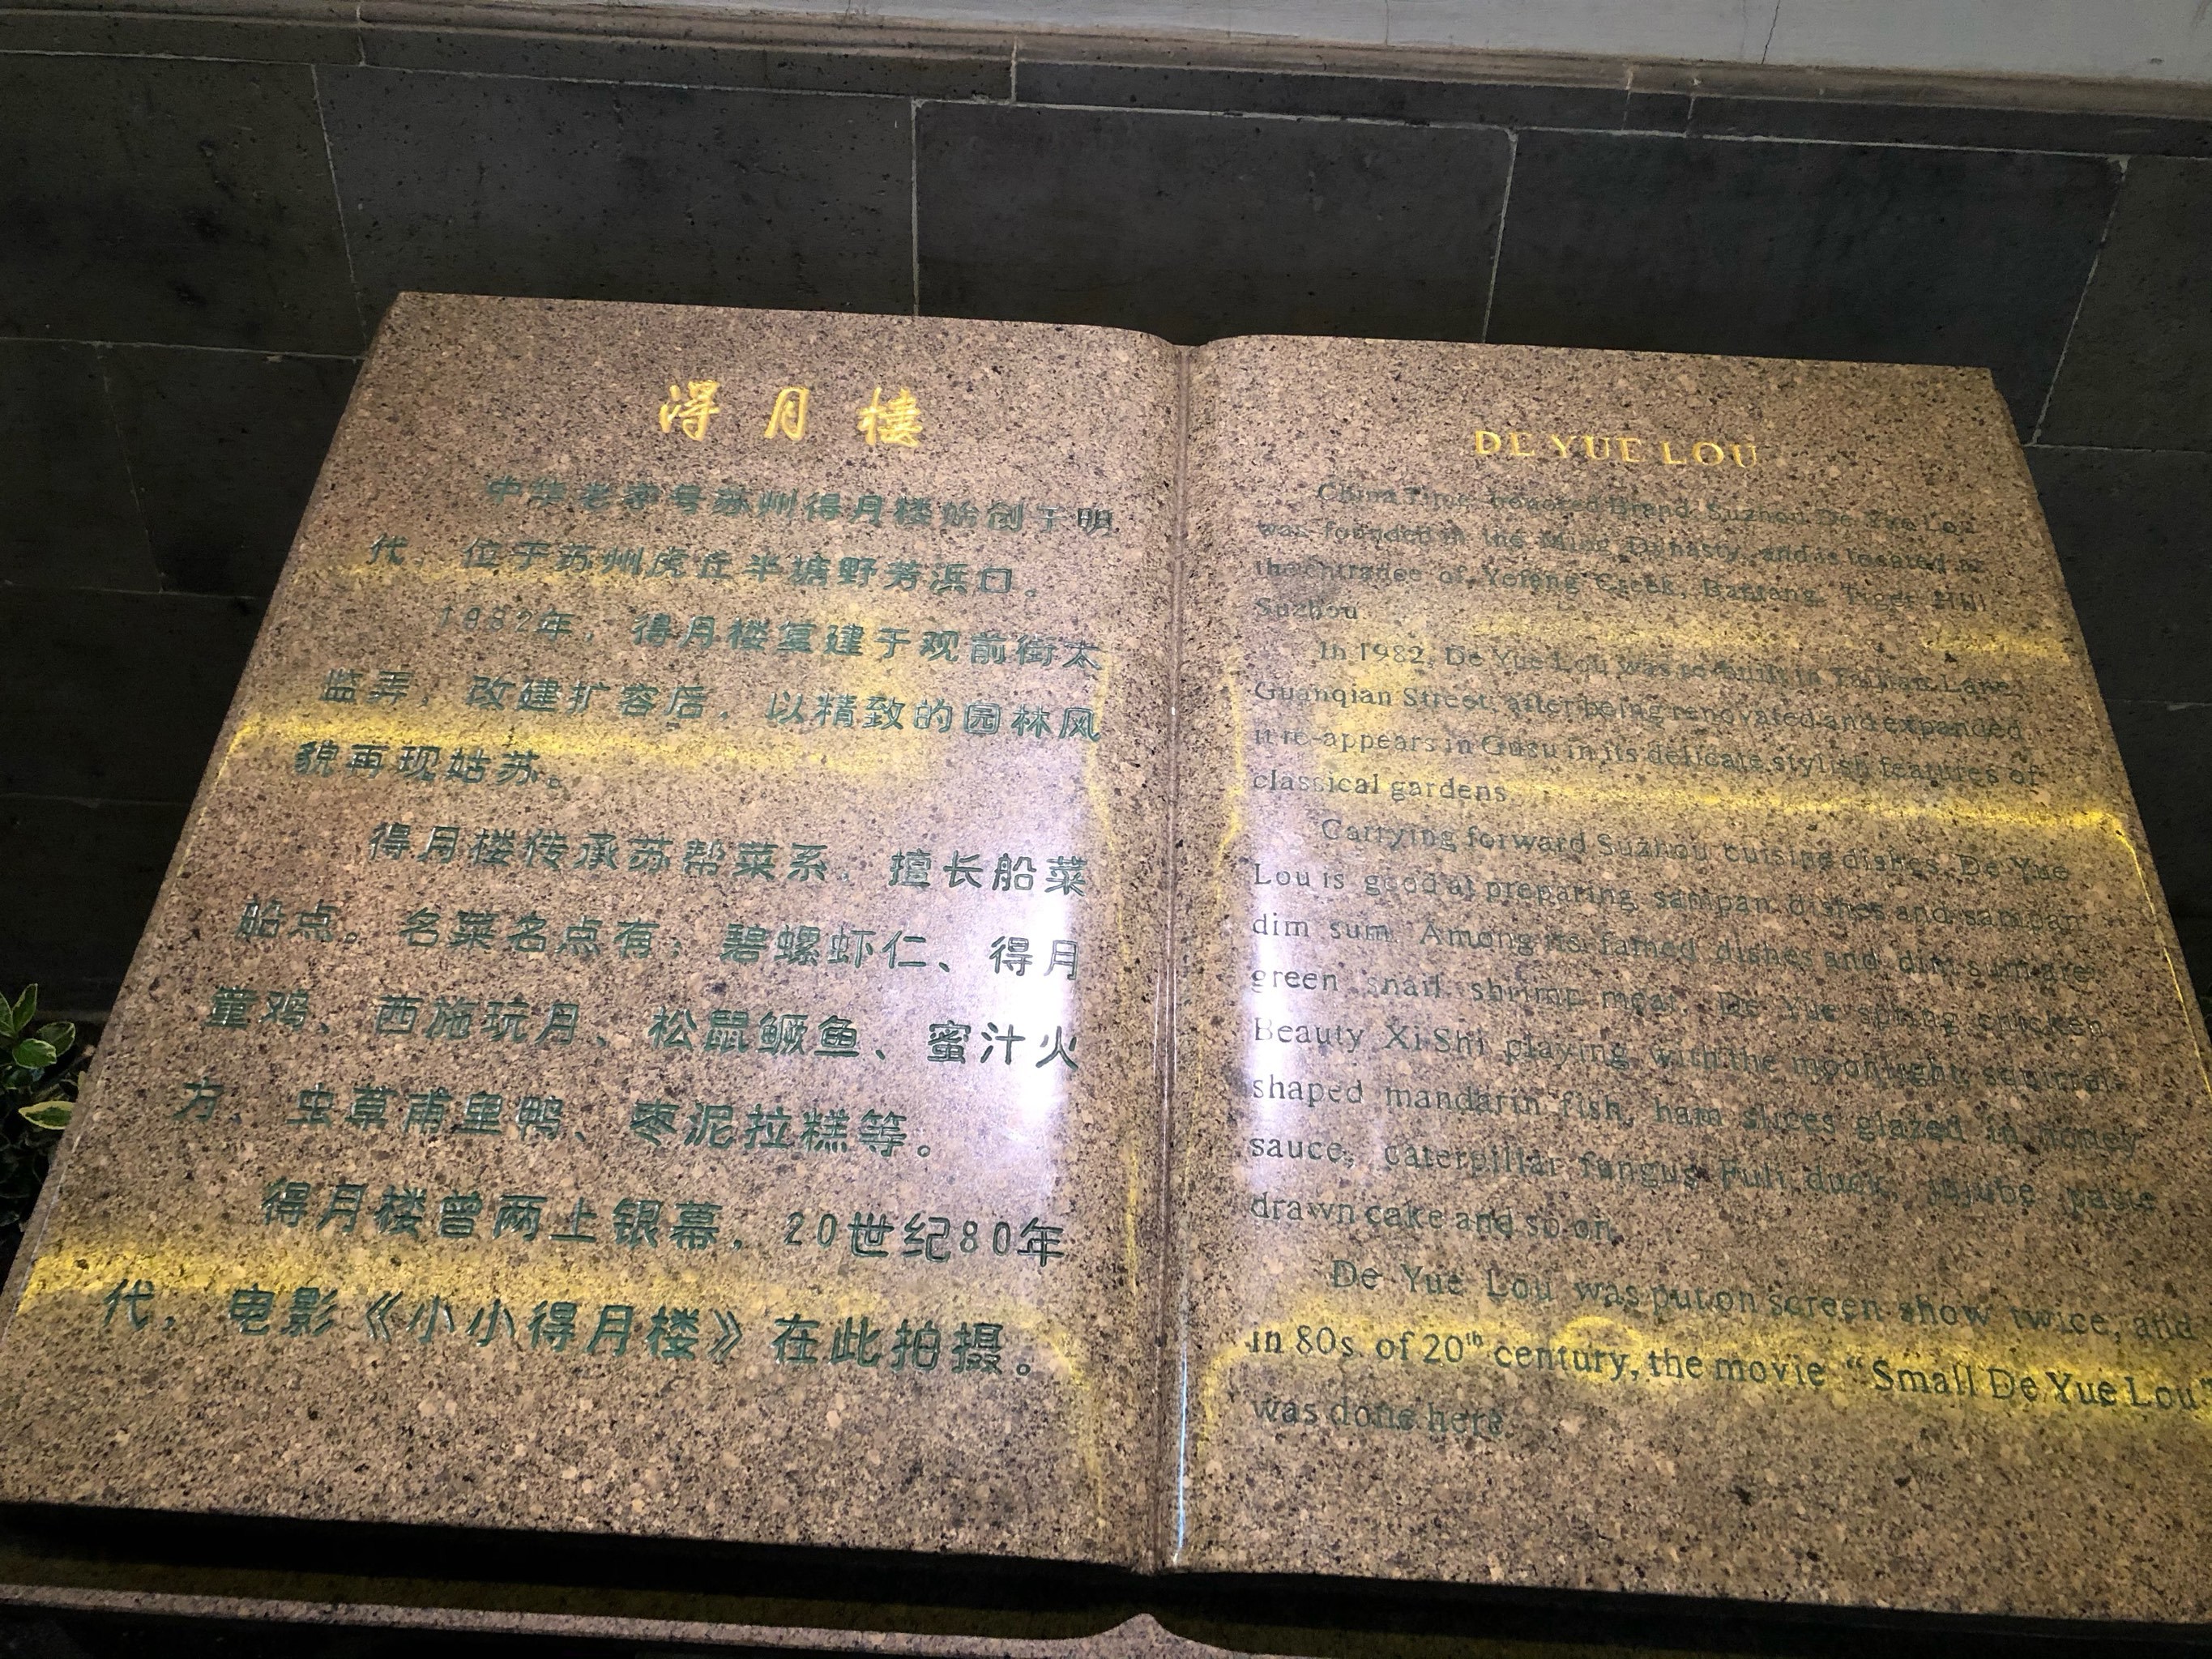 得月楼
中华老字号苏州得月楼始创于明
代，位于苏州虎丘半塘野芳浜口。
1982年，得月楼复建于观前街太
监弄，改建扩容后，以精致的园林风
貌再现姑苏。
得月楼传承苏帮菜系，擅长船菜
船点。名菜名点有：碧螺虾仁、得月
童鸡、西施玩月、松鼠鳜鱼、蜜汁火
方、虫草甫里鸭、枣泥拉糕等。
得月楼曾两上银幕，20世纪80年
代，电影《小小得月楼》在此拍摄。
DE YUE LOU
China Time-honored Brand Suzhou De Yue Lou
was founded in the Ming Dynasty, and is located at
the entrance of Yefang Creek, Bantang, Tiger Hill
Suzhou
In 1982, De Yue Lou was re-built in Taijian Lane,
Guanqian Street; after being renovated and expanded
it re-appears in Gusu in its delicate stylish features of
classical gardens.
Carrying forward Suzhou cuisine dishes, De Yue
Lou is good at preparing sampan dishes and sampan
dim sum. Among its famed dishes and dim sum are
green snail shrimp meat, De Yue spring chicken,
Beauty Xi Shi playing with the moonlight, squirrel-
shaped mandarin fish, ham slices glazed in honey
sauce, caterpillar fungus Fuli duck, jujube paste
drawn cake and so on.
De Yue Lou was put on screen show twice, and
in 80s of 20th century, the movie "Small De Yue Lou"
was done here.